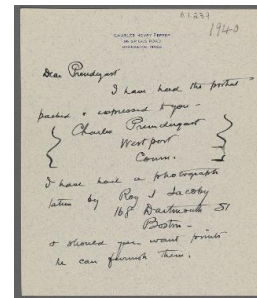 A1.239
1940
CHARLES HOVEY PEPPER
Dear Prendergast
I have had the portrait
packed & expressed to you -
Charles Prendergast
Westport
Conn.
I have had a photograph
taken by Roy J Jacoby
168 Dartmouth St
Boston -
& should you want prints
he can furnish them.